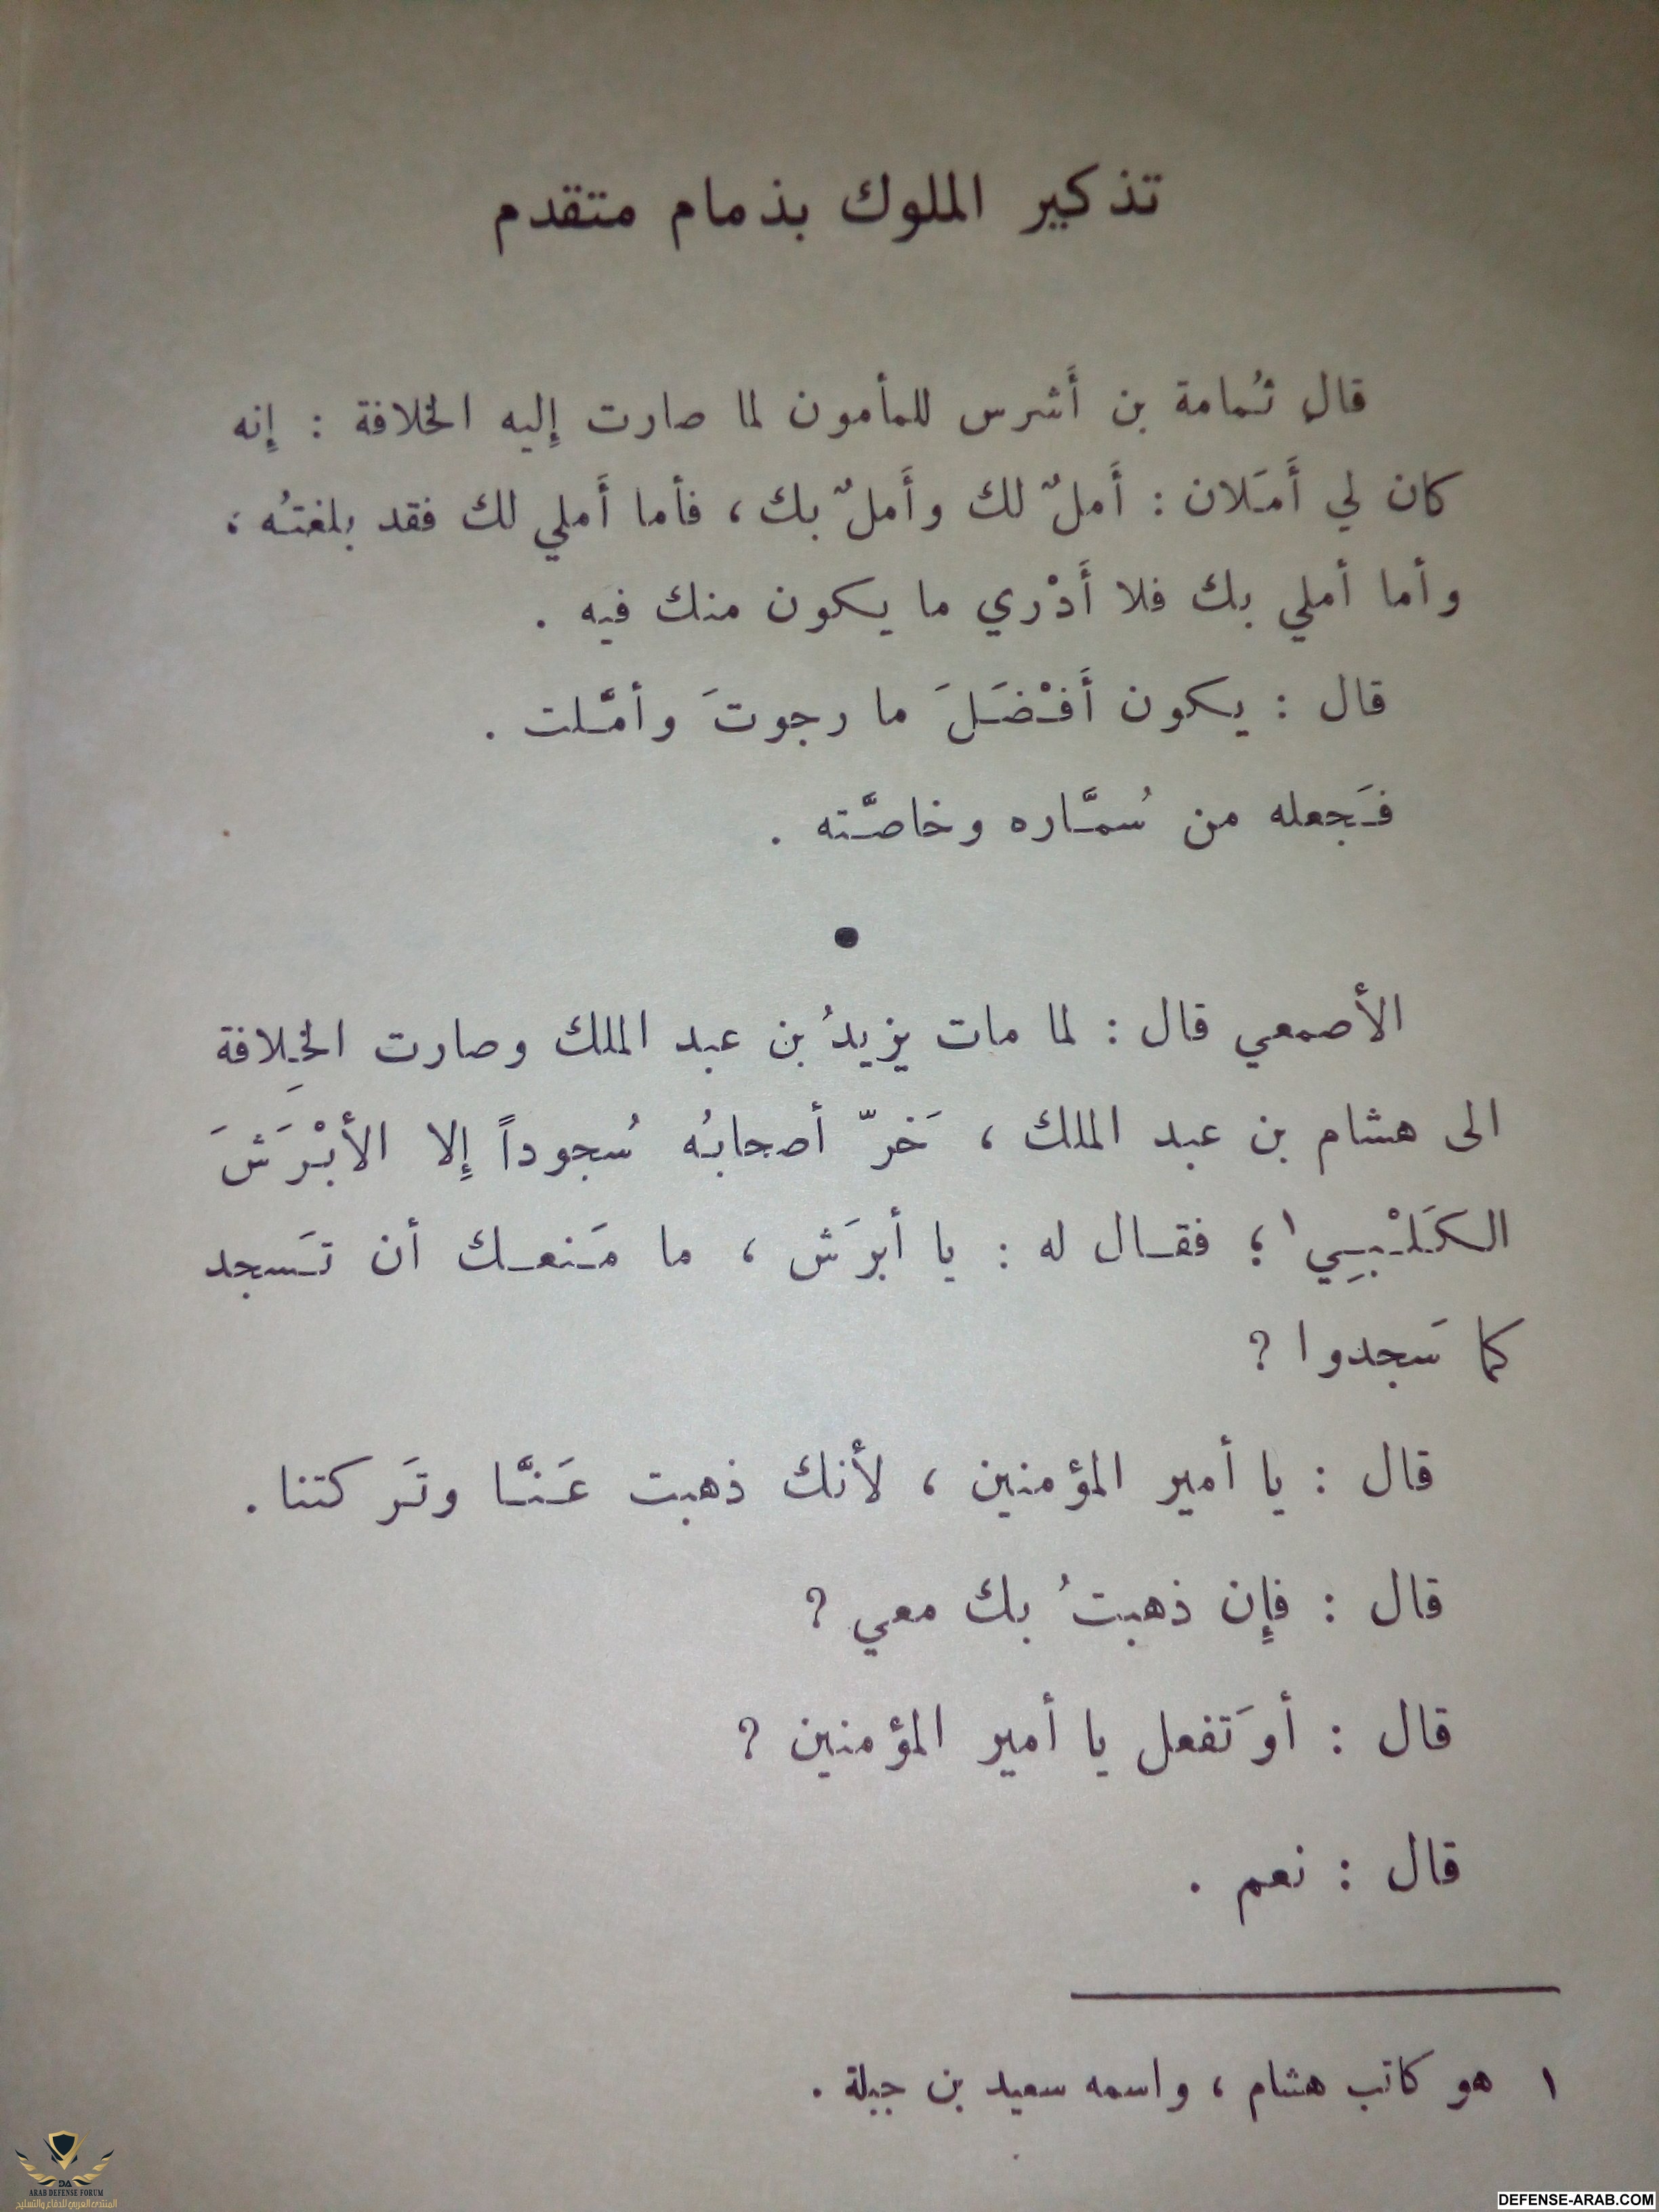 تذكير الملوك بذمام متقدم
قال ثُمامة بن أَشرس للمأمون لما صارت إليه الخلافة : إنه
كان لي أَمَلان : أَملٌ لك وأَملٌ بك ، فأما أَملي لك فقد بلغتُه ،
وأما أملي بك فلا أَدْري ما يكون منك فيه .
قال : يكون أَفْضَلَ ما رجوتَ وأمَّلت .
فَجعله من سُمَّاره وخاصَّته .
●
الأصمعي قال : لما مات يزيدُ بن عبد الملك وصارت الخِلافة
الى هشام بن عبد الملك ، خَرّ أصحابُه سُجوداً إلا الأبْرَشَ
الكَلْبِي ١ ؛ فقال له : يا أبرَش ، ما مَنعك أن تَسجد
كما سَجدوا ?
قال : يا أمير المؤمنين ، لأنك ذهبت عَنَّا وتَركتنا .
قال : فإن ذهبتُ بك معي ?
قال : أوَتفعل يا أمير المؤمنين ?
قال : نعم .
١ هو كاتب هشام ، واسمه سعيد بن جبلة .
DA
ARAB DEFENSE FORUM
المنتدى العربي للدفاع والتسليح
DEFENSE-ARAB.COM